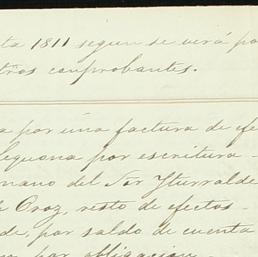 ta 1811 segun se verá po
tros conprobantes.
a por una factura de efe
lequona por escritura -
mano del Sor Yturralde
e Oroz, resto de efectos -
de, por saldo de cuenta
por obligacion